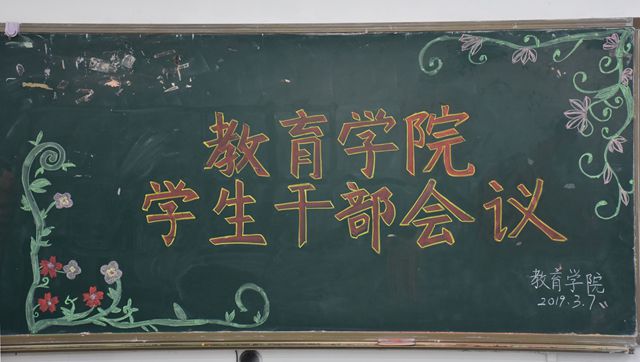 教育学院
学生干部会议
教育学院
2019.3.7